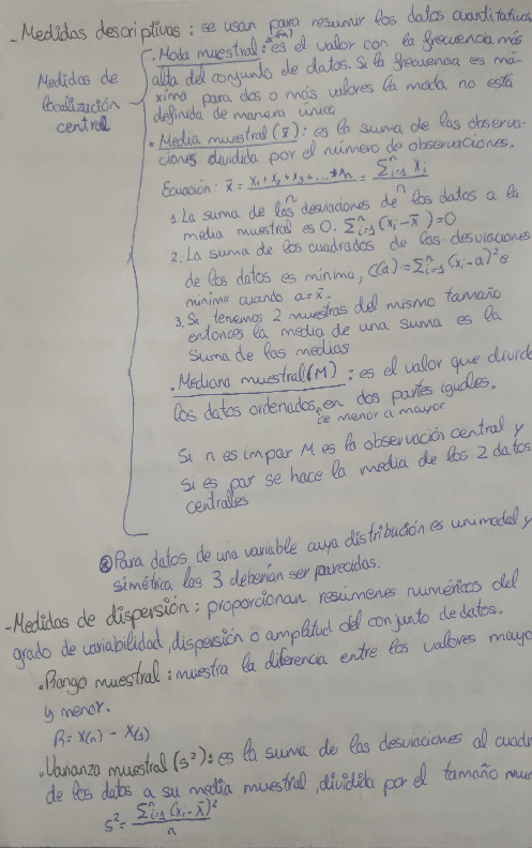 - Medidas descriptivas: se usan para resumir los datos cuantitativos
Medidas de
localización
central
· Moda muestral: es el valor con la frecuencia más
alta del conjunto de datos. Si la frecuencia es má-
xima para dos o más valores la moda no está
definida de manera única.
· Media muestral (x̄): es la suma de las observa-
ciones dividida por el número de observaciones.
Ecuación: x̄ = (x₁ + x₂ + x₃ + ... + xₙ)/n = (Σⁿᵢ₌₁ xᵢ)/n
1. La suma de las desviaciones de los datos a la
media muestral es 0. Σⁿᵢ₌₁ (xᵢ - x̄) = 0
2. La suma de los cuadrados de las desviaciones
de los datos es mínima, C(a) = Σⁿᵢ₌₁ (xᵢ - a)² e
mínima cuando a = x̄.
3. Si tenemos 2 muestras del mismo tamaño
entonces la media de una suma es la
suma de las medias
· Mediana muestral (M): es el valor que divide
los datos ordenados, en dos partes iguales.
de menor a mayor
Si n es impar M es la observación central y
si es par se hace la media de los 2 datos
centrales
⊗ Para datos de una variable cuya distribución es unimodal y
simétrica las 3 deberían ser parecidas.
- Medidas de dispersión: proporcionan resúmenes numéricos del
grado de variabilidad, dispersión o amplitud del conjunto de datos.
· Rango muestral: muestra la diferencia entre los valores mayo
y menor.
R = X(n) - X(1)
· Varianza muestral (s²): es la suma de las desviaciones al cuadr
de los datos a su media muestral, dividida por el tamaño mue
s² = (Σⁿᵢ₌₁ (xᵢ - x̄)²)/n